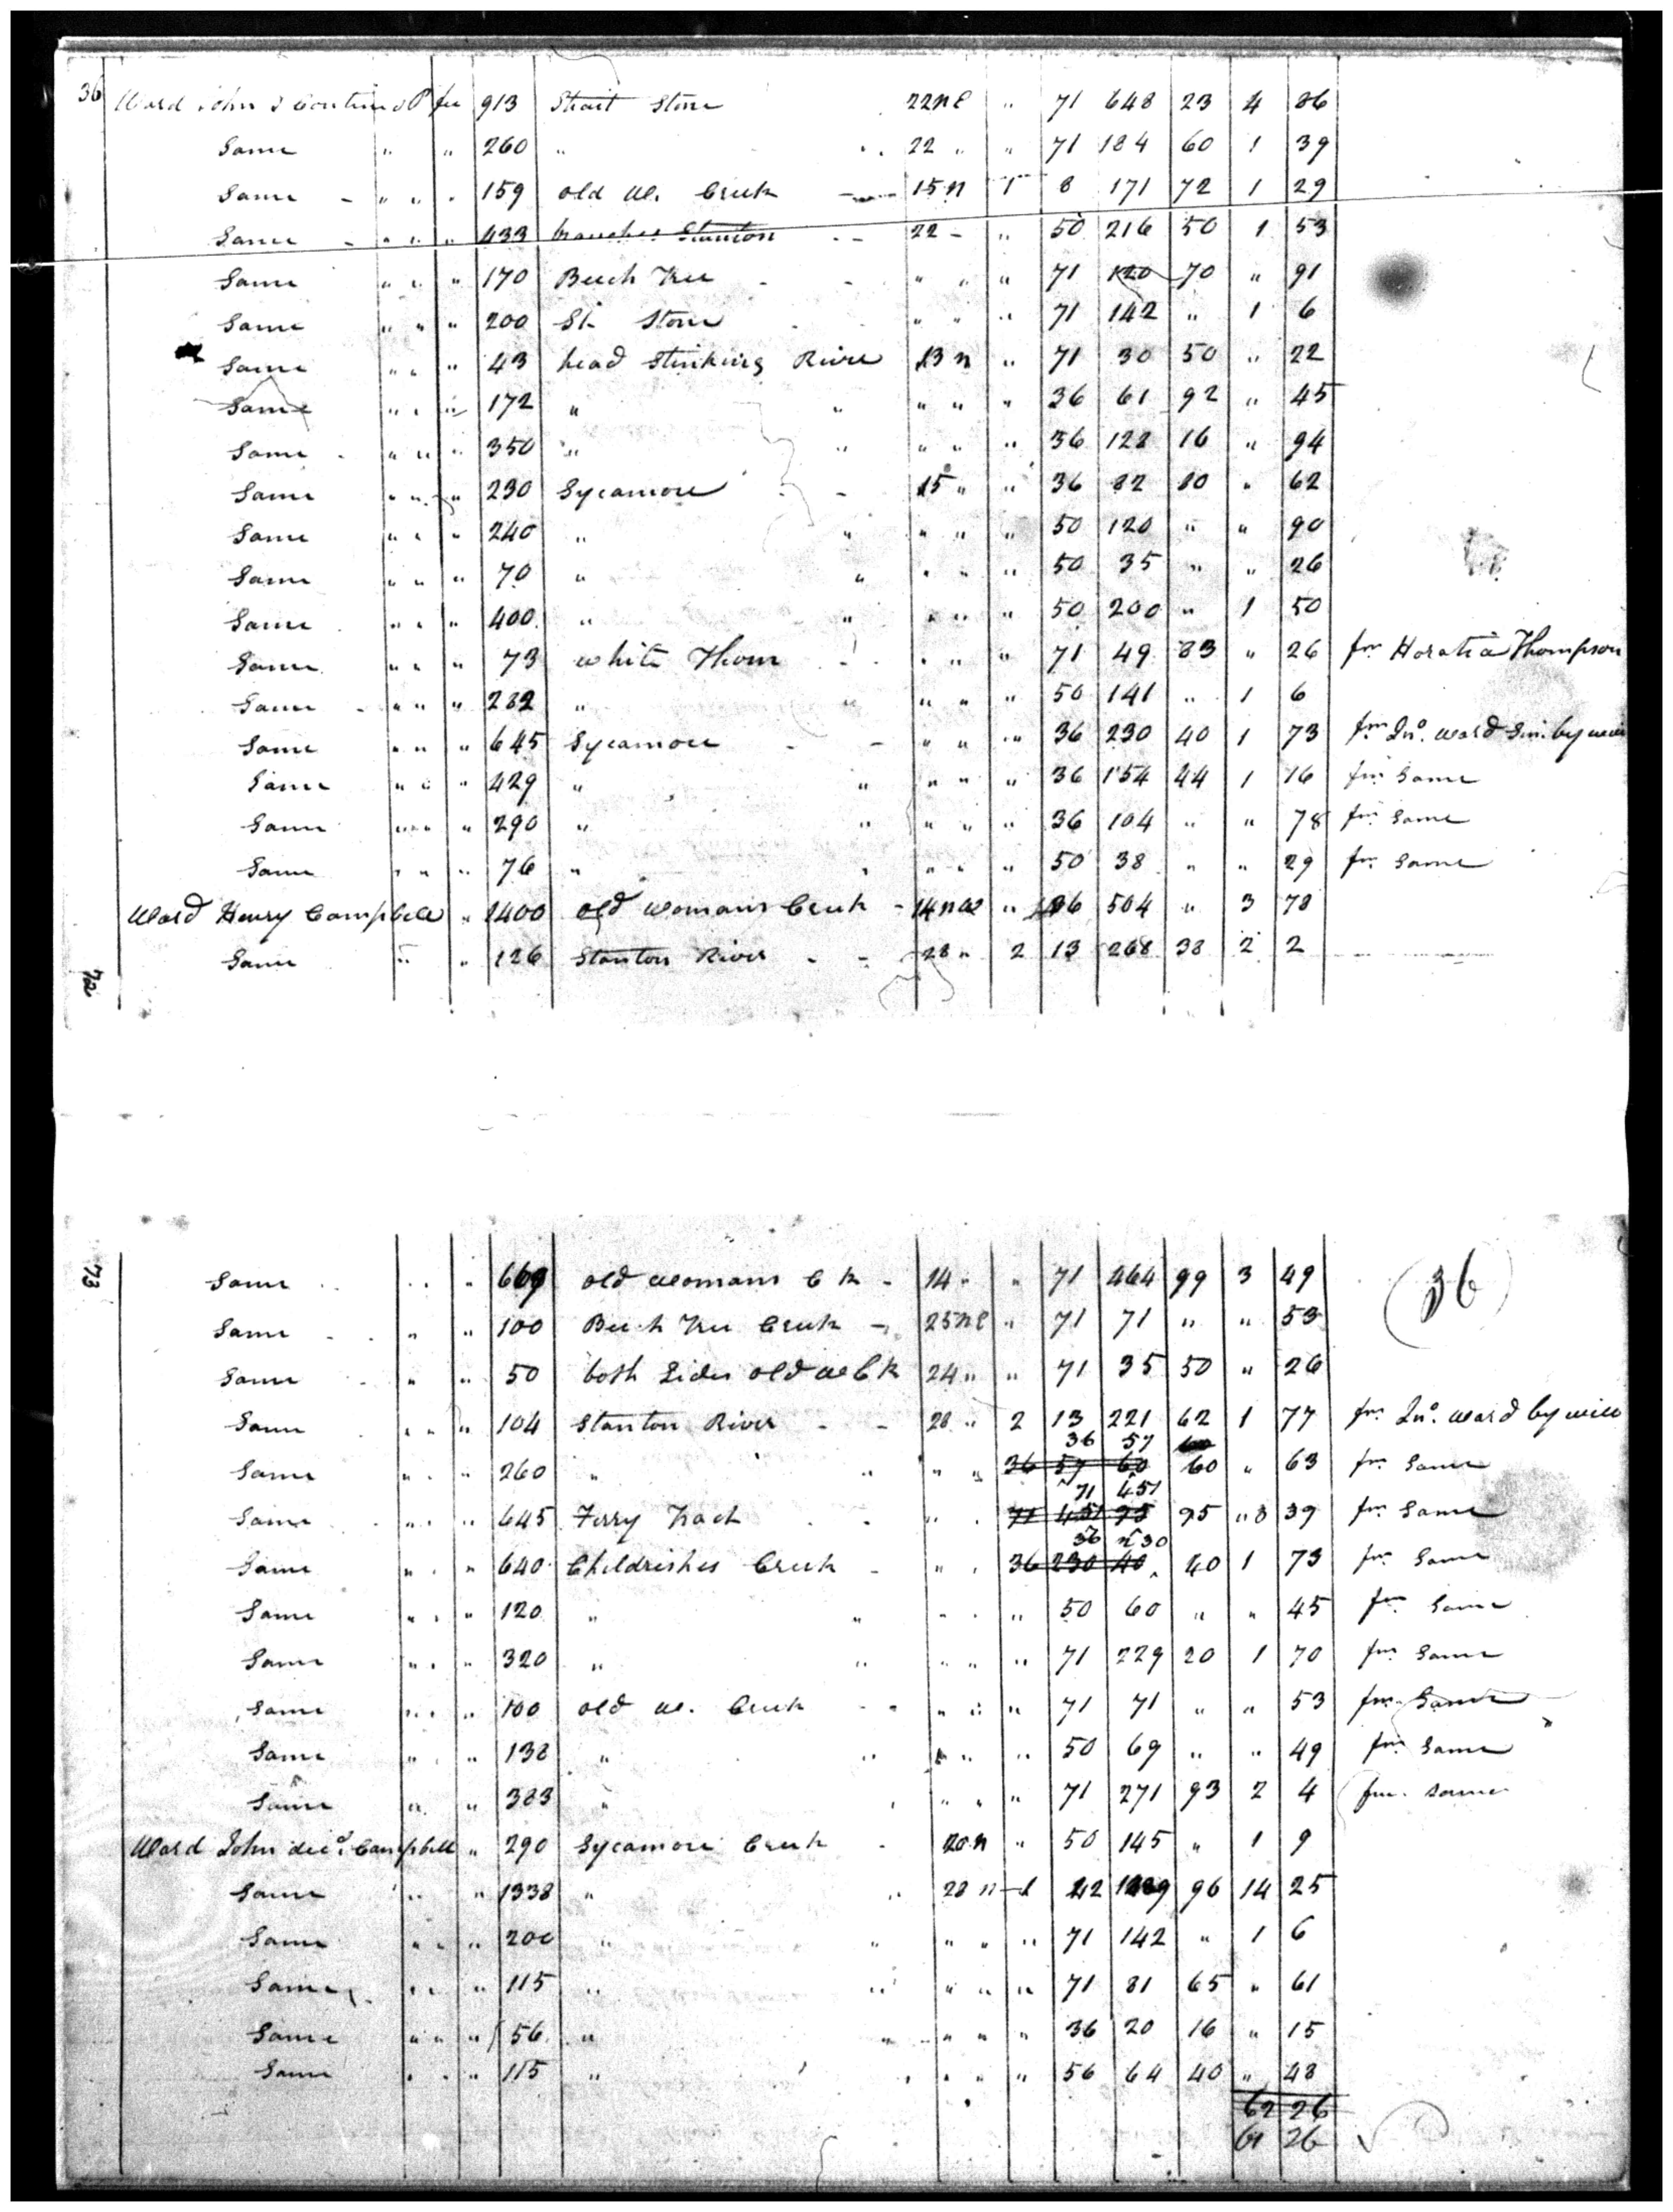 36 Ward John S Continued P fee 913 Strait Stone 22 NE " 71 648 23 4 86
Same " " 260 " " 22 " " 71 184 60 1 39
Same " " " 159 old W. Creek 15 N 1 8 171 72 1 29
Same " " " 433 branches Stanton 22 " 50 216 50 1 53
Same " " " 170 Beech Tree " " " 71 120 70 " 91
Same " " " 200 St. Stone " " " 71 142 " 1 6
Same " " " 43 head Stinking River 13 N " 71 30 50 " 22
Same " " " 172 " " " " " 36 61 92 " 45
Same " " " 350 " " " " " 36 128 16 " 94
Same " " " 230 Sycamore 15 " " 36 82 80 " 62
Same " " " 240 " " " " " 50 120 " " 90
Same " " " 70 " " " " " 50 35 " " 26
Same " " " 400 " " " " " 50 200 " 1 50
Same " " " 73 white Thorn " " " 71 49 83 " 26 fm Horatia Thompson
Same " " " 282 " " " " " 50 141 " 1 6
Same " " " 645 Sycamore " " " 36 230 40 1 73 fm Jno. Ward Sen. by will
Same " " " 429 " " " " " 36 154 44 1 16 fm Same
Same " " " 290 " " " " " 36 104 " " 78 fm Same
Same " " " 76 " " " " " 50 38 " " 29 fm Same
Ward Henry Campbell " 1400 old womans Creek 14 NW " 36 504 " 3 78
Same " " 126 Stanton River 28 " 2 13 268 38 2 2
72
73
Same " " 669 old womans Ck 14 " " 71 464 99 3 49
(36)
Same " " 100 Beech Tree Creek 25 NE " 71 71 " " 53
Same " " 50 both Sides old W Ck 24 " " 71 35 50 " 26
Same " " " 104 Stanton River 28 " 2 13 221 62 1 77 fm Jno. Ward by will
36 57
Same " " " 260 " " " " 36 57 60 60 " 63 fm Same
71 451
Same " " " 645 Ferry Tract " " 71 451 95 95 " 3 39 fm Same
36 230
Same " " " 640 Childrishes Creek " " 36 230 40 40 1 73 fm Same
Same " " " 120 " " " " " 50 60 " " 45 fm Same
Same " " " 320 " " " " " 71 229 20 1 70 fm Same
Same " " " 100 old W. Creek " " " 71 71 " " 53 fm Same
Same " " " 138 " " " " " 50 69 " " 49 fm Same
Same " " 383 " " " " " 71 271 93 2 4 fm Same
Ward John decd. Campbell " 290 Sycamore Creek 20 N " 50 145 " 1 9
Same " " 1338 " " 28 N 1 42 96 14 25
Same " " " 200 " " " " " 71 142 " 1 6
Same " " " 115 " " " " " 71 81 65 " 61
Same " " " 56 " " " " " 36 20 16 " 15
Same " " " 115 " " " " " 56 64 40 " 48
62 26
61 26